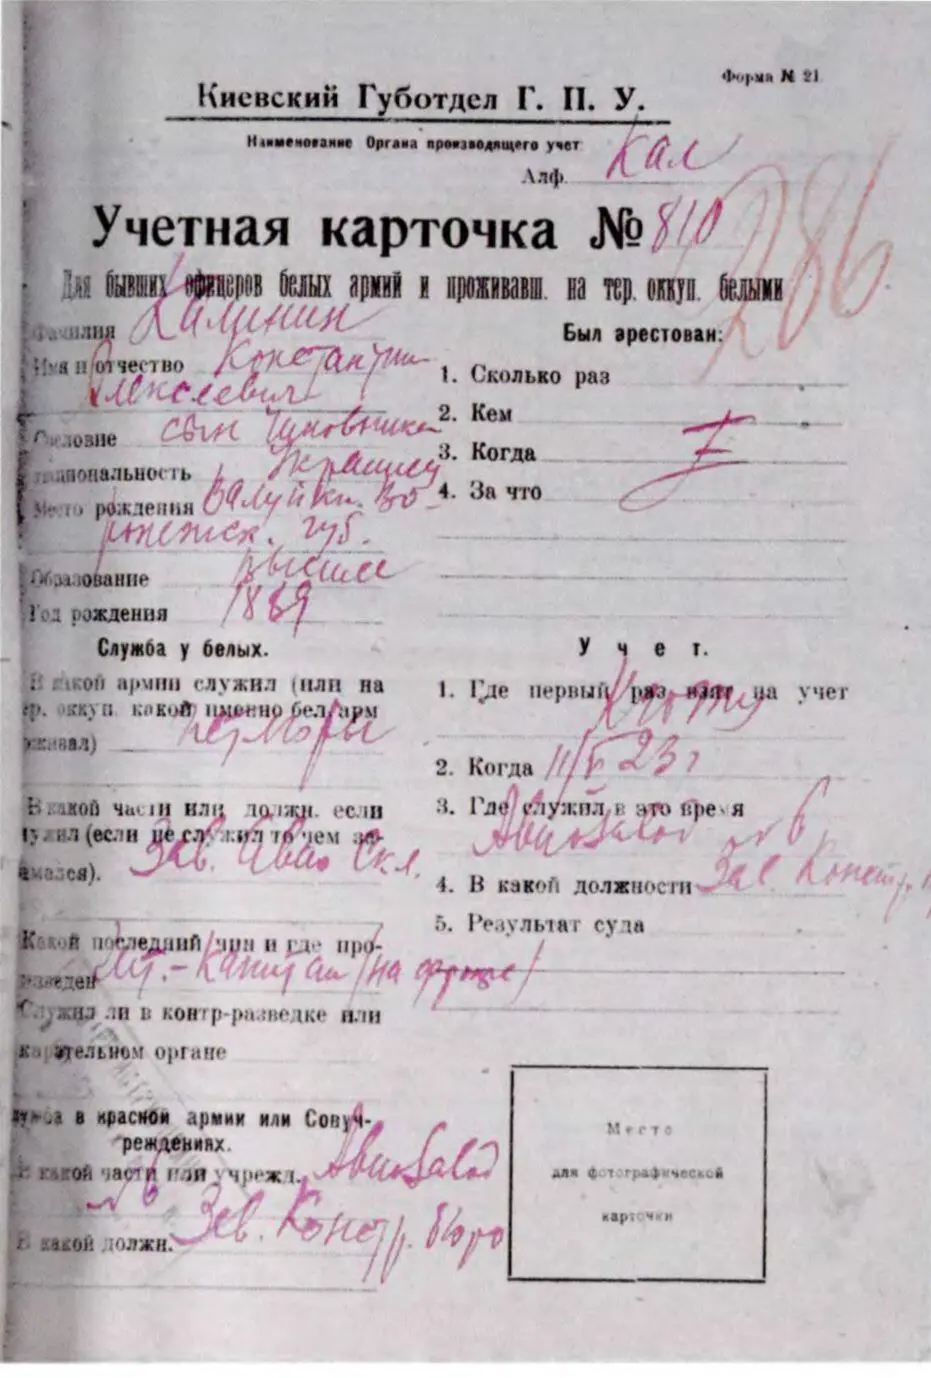 Форма № 21
Киевский Губотдел Г. П. У.
Наименование Органа производящего учет
Алф. Кал
Учетная карточка № 810
286
Для бывших офицеров белых армий и проживавш. на тер. оккуп. белыми
Фамилия Калинин
Имя и отчество Константин
Алексеевич
Сословие сын чиновника
Национальность Украинец
Место рождения Валуйки. Во-
ронежск. губ.
Образование высшее
Год рождения 1889
Служба у белых.
В какой армии служил (или на
тер. оккуп. какой именно бел/арм
Петлюры
проживал)
В какой части или должн. если
служил (если не служил то чем за-
Зав. Авио Скл.
нимался).
Какой последний чин и где про-
изведен Шт.-Капитан (на фронте)
Служил ли в контр-разведке или
карательном органе
Служба в красной армии или Совуч-
реждениях.
В какой части или учрежд. Авиозавод
№ 6
В какой должн. Зав. Констр. бюро
Был арестован:
1. Сколько раз
2. Кем
3. Когда
4. За что
Учет.
1. Где первый раз взят на учет
2. Когда 11/V 23 г
3. Где служил в это время
Авиозавод № 6
4. В какой должности Зав. Констр.
5. Результат суда
Место
для фотографической
карточки